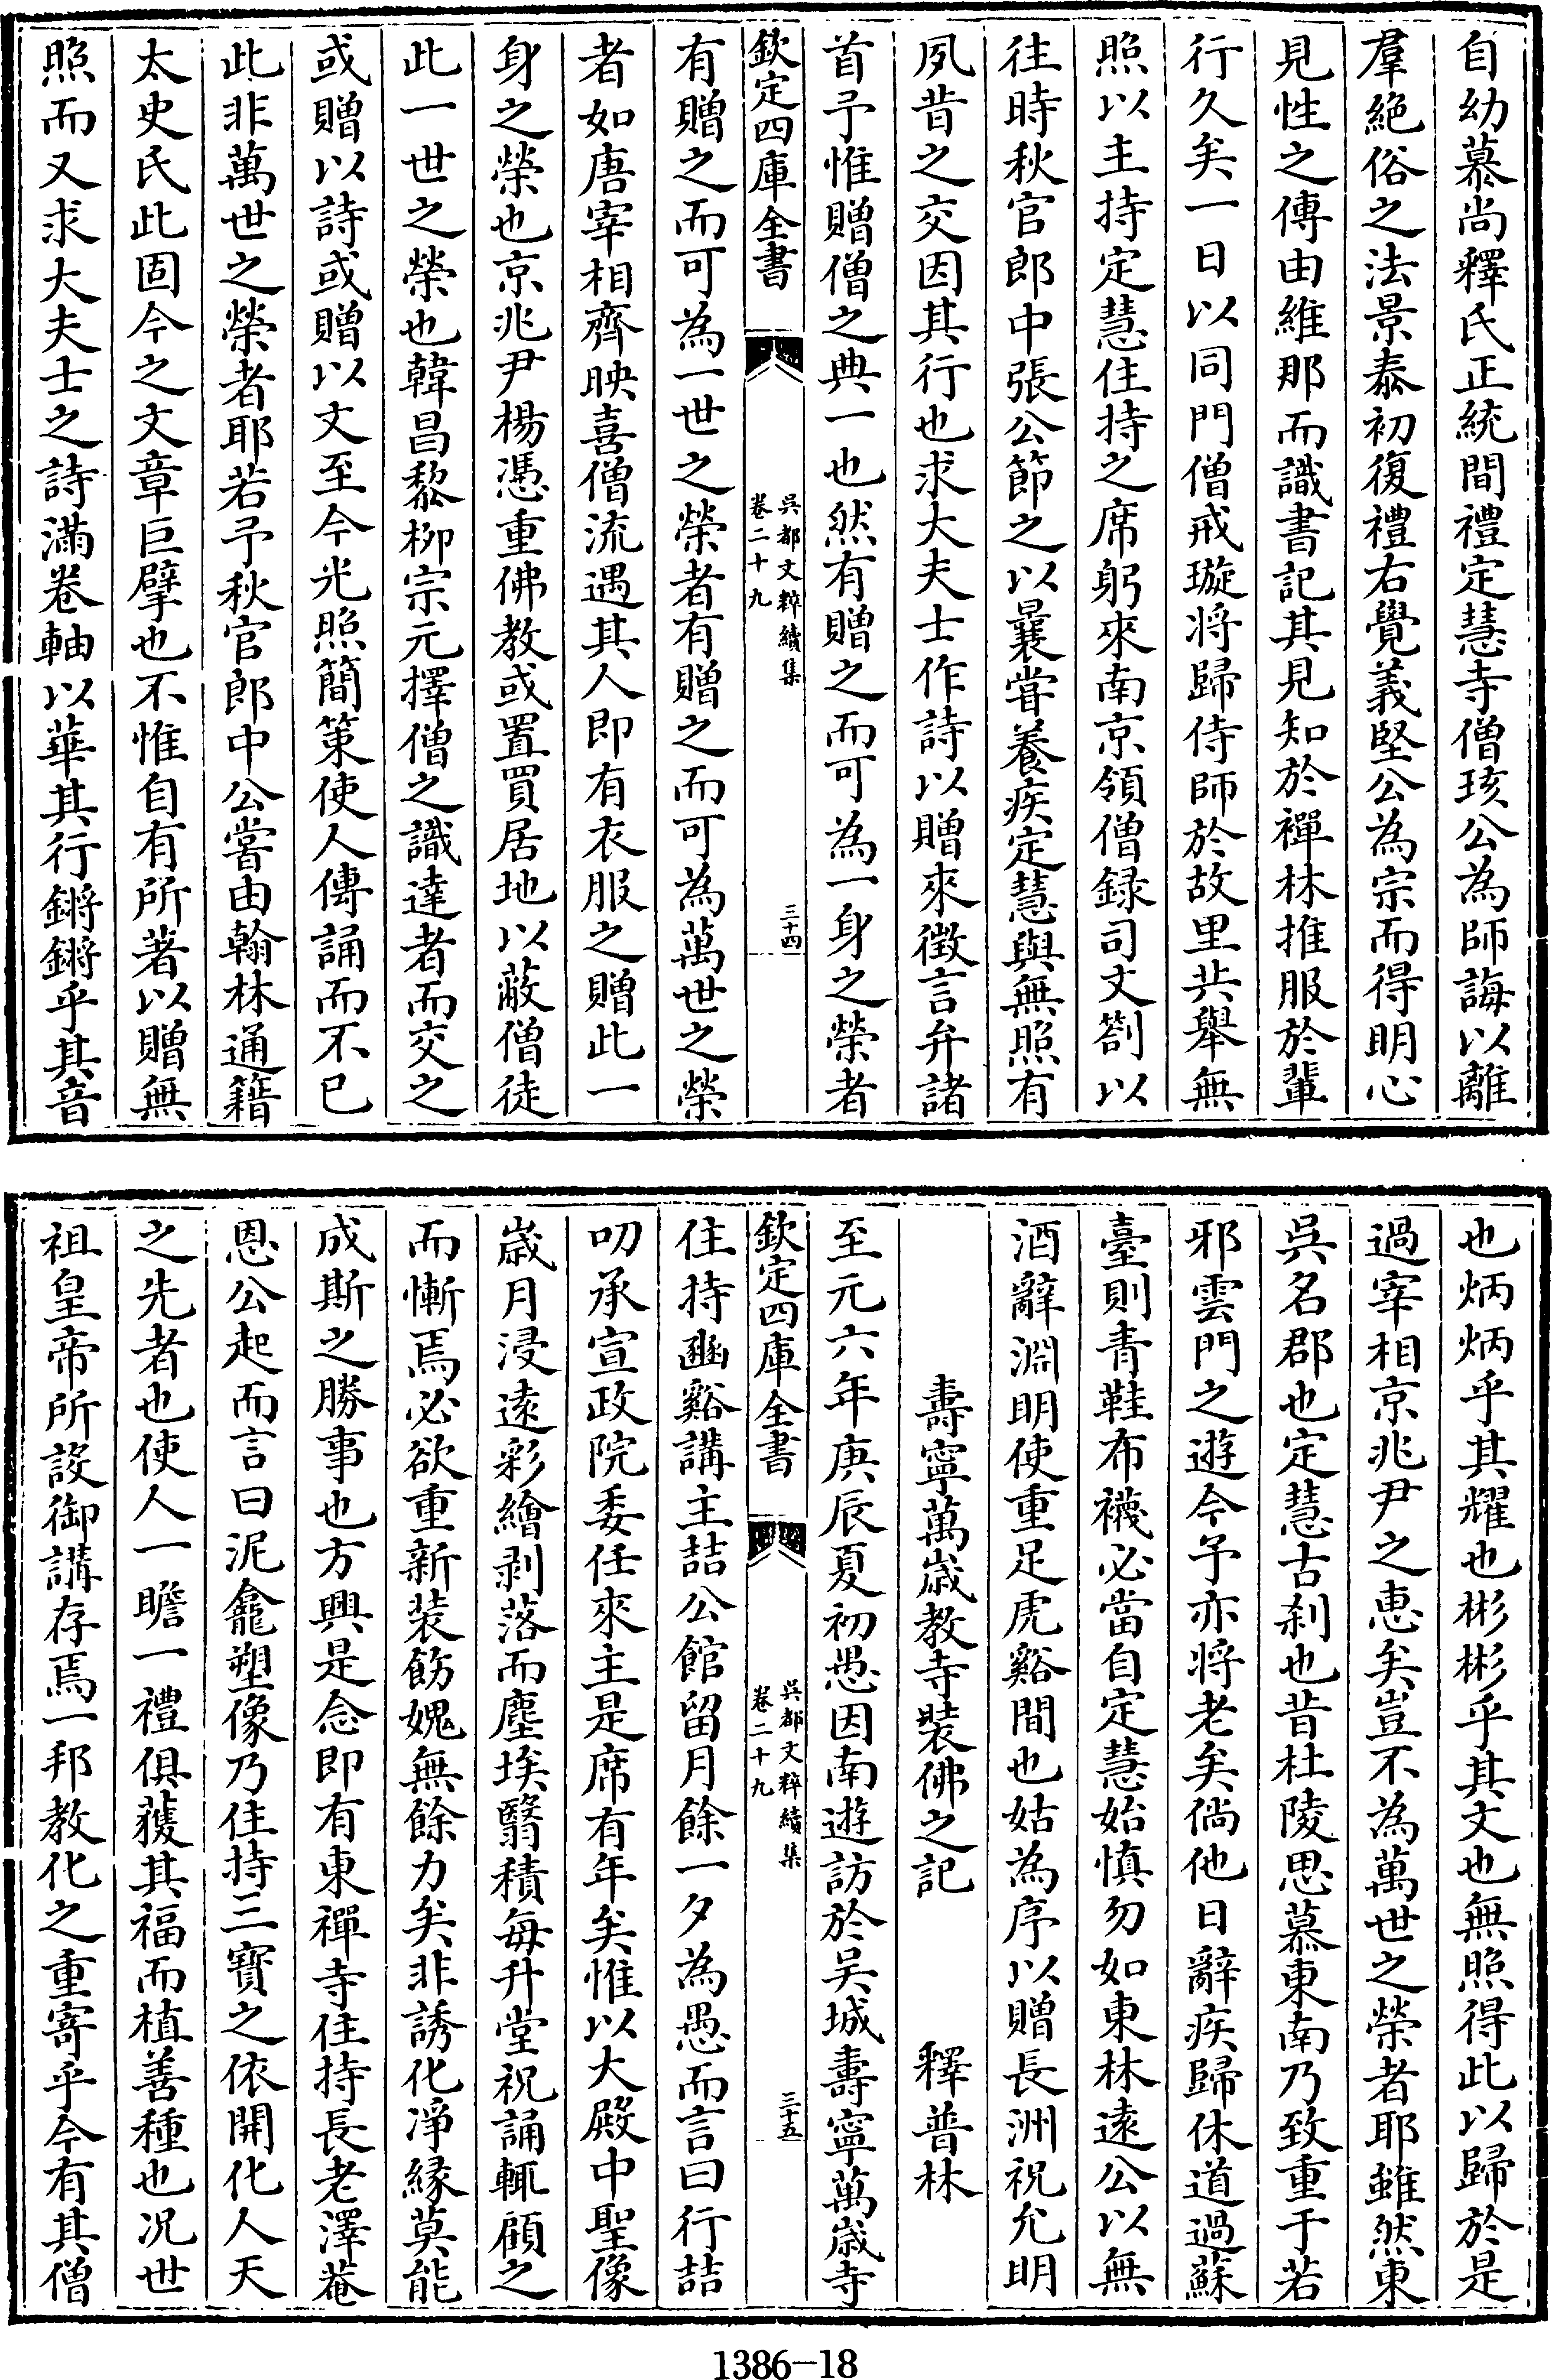 自幼慕尚釋氏正統間禮定慧寺僧珓公為師誨以離
羣絶俗之法景泰初復禮右覺義堅公為宗而得明心
見性之傳由維那而識書記其見知於禪林推服於輩
行久矣一日以同門僧戒璇将歸侍師於故里共舉無
照以主持定慧住持之席躬來南京領僧録司文劄以
往時秋官郎中張公節之以曩甞養疾定慧與無照有
夙昔之交因其行也求大夫士作詩以贈來徴言弁諸
首予惟贈僧之典一也然有贈之而可為一身之榮者
欽定四庫全書
吳都文粹續集
卷二十九
三十四
有贈之而可為一世之榮者有贈之而可為萬世之榮
者如唐宰相齊映喜僧流遇其人即有衣服之贈此一
身之榮也京兆尹楊憑重佛教或置買居地以蔽僧徒
此一世之榮也韓昌黎栁宗元擇僧之識達者而交之
或贈以詩或贈以文至今光照簡策使人傳誦而不已
此非萬世之榮者耶若予秋官郎中公嘗由翰林通籍
太史氏此固今之文章巨擘也不惟自有所著以贈無
照而又求大夫士之詩滿卷軸以華其行鏘鏘乎其音
也炳炳乎其耀也彬彬乎其文也無照得此以歸於是
過宰相京兆尹之惠矣豈不為萬世之榮者耶雖然東
吳名郡也定慧古刹也昔杜陵思慕東南乃致重于若
邪雲門之遊今予亦将老矣倘他日辭疾歸休道過蘇
臺則青鞋布襪必當自定慧始慎勿如東林逺公以無
酒辭淵明使重足虎谿間也姑為序以贈長洲祝允明
壽寧萬嵗教寺裝佛之記　釋普林
至元六年庚辰夏初愚因南遊訪於吴城壽寧萬嵗寺
欽定四庫全書
吳都文粹續集
卷二十九
三十五
住持豳谿講主喆公館留月餘一夕為愚而言曰行喆
叨承宣政院委任來主是席有年矣惟以大殿中聖像
嵗月浸逺彩繪剥落而塵埃翳積每升堂祝誦輒顧之
而慚焉必欲重新裝飭媿無餘力矣非誘化凈縁莫能
成斯之勝事也方興是念即有東禪寺住持長老澤菴
恩公起而言曰泥龕塑像乃住持三寳之依開化人天
之先者也使人一瞻一禮俱䕶其福而植善種也况世
祖皇帝所設御講存焉一邦教化之重寄乎今有其僧
1386—18